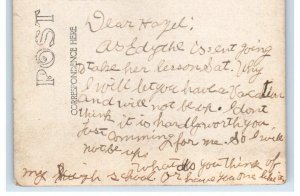 POST
CORRESPONDENCE HERE
Dear Hazel:
As Edythe isent going
take her lesson Sat. Why
I will let you have a vacation
and will not be up. I dont
think it is hardly worth you
just comming for me. So I will
not be up.
What do you think of
my school or have you one